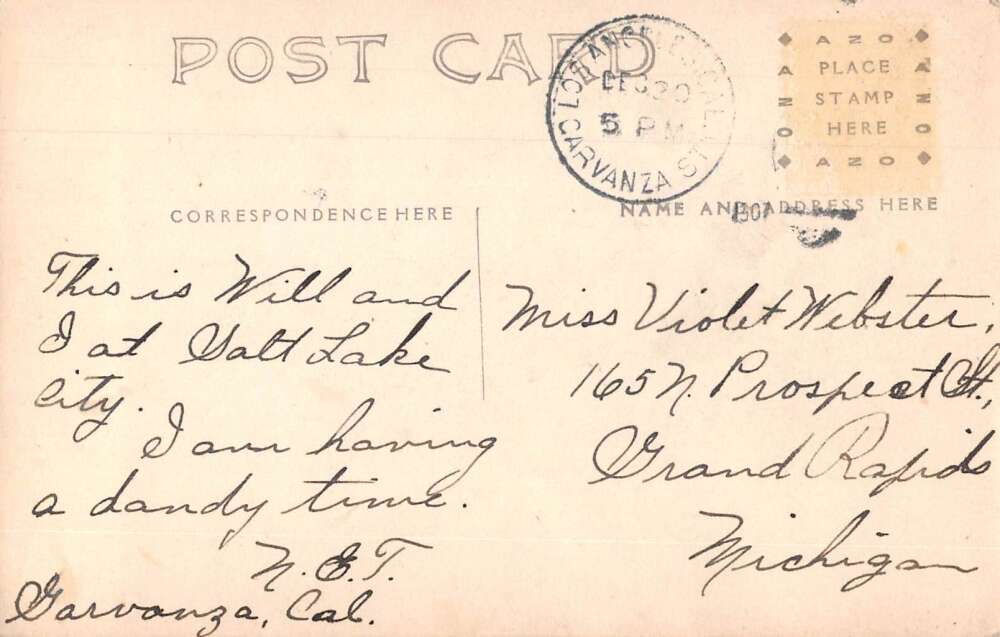 POST CARD
LOS ANGELES, CAL.
DEC 30
5 PM
GARVANZA STA
1907
AZO
AZO
PLACE
STAMP
HERE
AZO
AZO
CORRESPONDENCE HERE
NAME AND ADDRESS HERE
This is Will and
I at Salt Lake
City.
I am having
a dandy time.
N.E.T.
Garvanza, Cal.
Miss Violet Webster,
165 N. Prospect St.,
Grand Rapids
Michigan